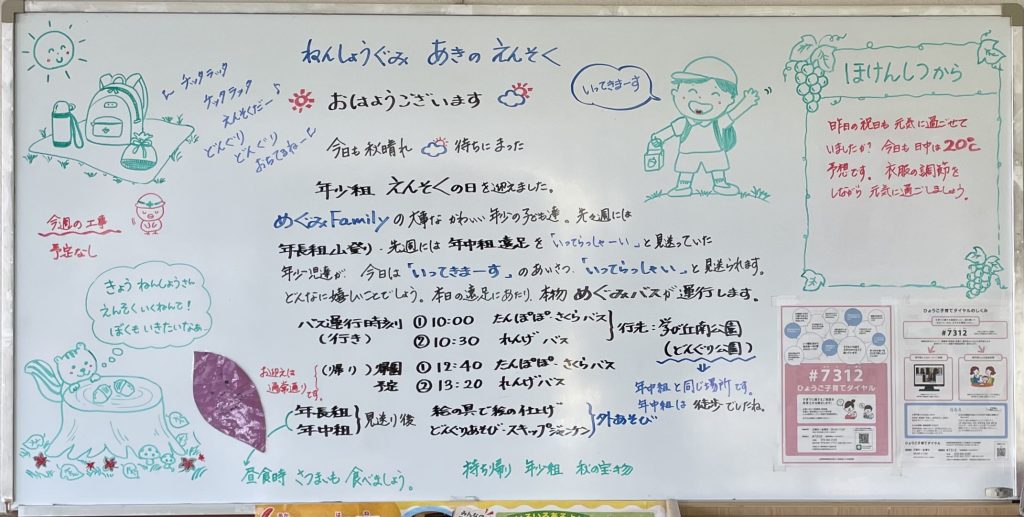 ねんしょうぐみ あきの えんそく
♪ ケッタラッタ
ケッタラッタ
えんそくだー♪
どんぐり
どんぐり
おちてるねー♪
おはようございます
いってきまーす
今日も 秋晴れ 待ちにまった
年少組 えんそくの日を迎えました。
めぐみFamilyの大事な かわいい 年少の子ども達。先々週には
年長組山登り・先週には 年中組遠足を「いってらっしゃーい」と見送っていた
年少児達が 今日は「いってきまーす」のあいさつ、「いってらっしゃい」と見送られます。
どんなに嬉しいことでしょう。本日の遠足にあたり、本物 めぐみバスが運行します。
バス運行時刻 ①10:00 たんぽぽ・さくらバス
(行き) ②10:30 れんげ バス
行先:学が丘南公園
(どんぐり公園)
(帰り)降園 ①12:40 たんぽぽ・さくらバス
予定 ②13:20 れんげバス
お迎えは
通常通りです。
年中組と同じ場所です。
年中組は 徒歩でしたね。
年長組
年中組
見送り後 絵の具で絵の仕上げ
どんぐりあそび・スキップジャンケン
外あそび
昼食時 さつまいも 食べましょう。
持ち帰り 年少組 秋の宝物
今週の工事
予定なし
きょう ねんしょうさん
えんそく いくねんて!
ぼくも いきたいなぁ
ほけんしつから
昨日の祝日も 元気に過ごせて
いましたか?今日も 日中は20℃
予想です。 衣服の調節を
しながら 元気に過ごしましょう。
#7312
ひょうご子育てダイヤル
ひょうご子育てダイヤルのしくみ
#7312
Q&A
ひょうご子育てダイヤル
#7312